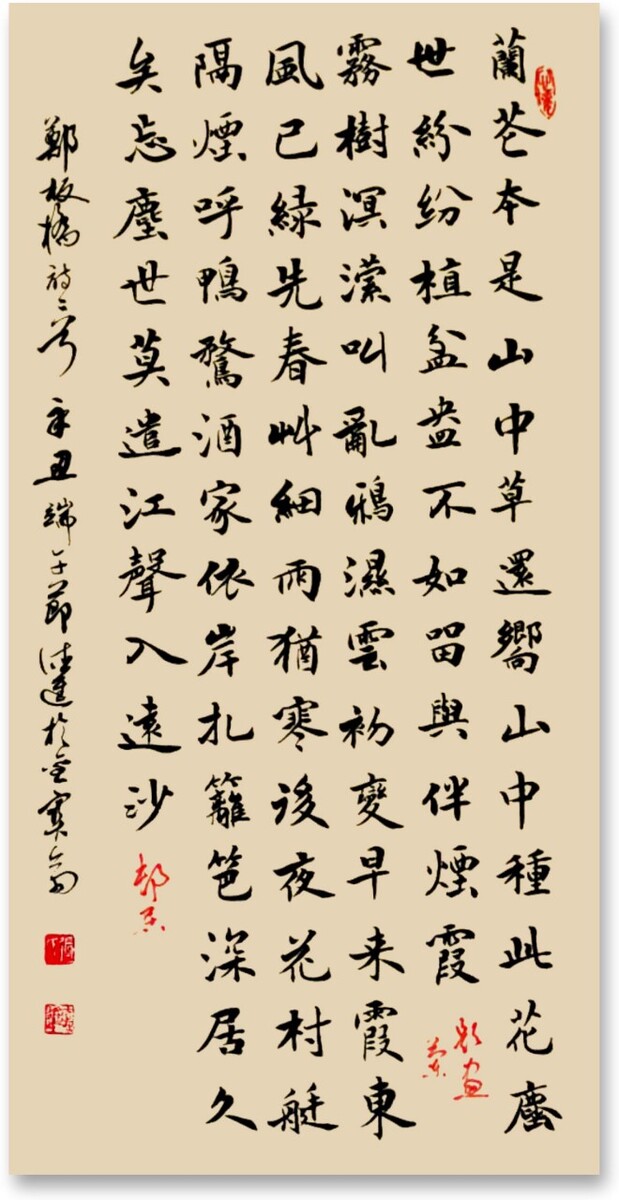 蘭芲本是山中草還嚮山中種此花塵
世紛紛植盆盎不如留與伴煙霞
題画
蘭
霧樹溟濛叫亂鴉濕雲初變早来霞東
風已緑先春艸細雨猶寒後夜花村艇
隔煙呼鴨鶩酒家依岸扎籬笆深居久
矣忘塵世莫遣江聲入遠沙
邨居
鄭板橋詩二首 辛丑端午節於金寶斋